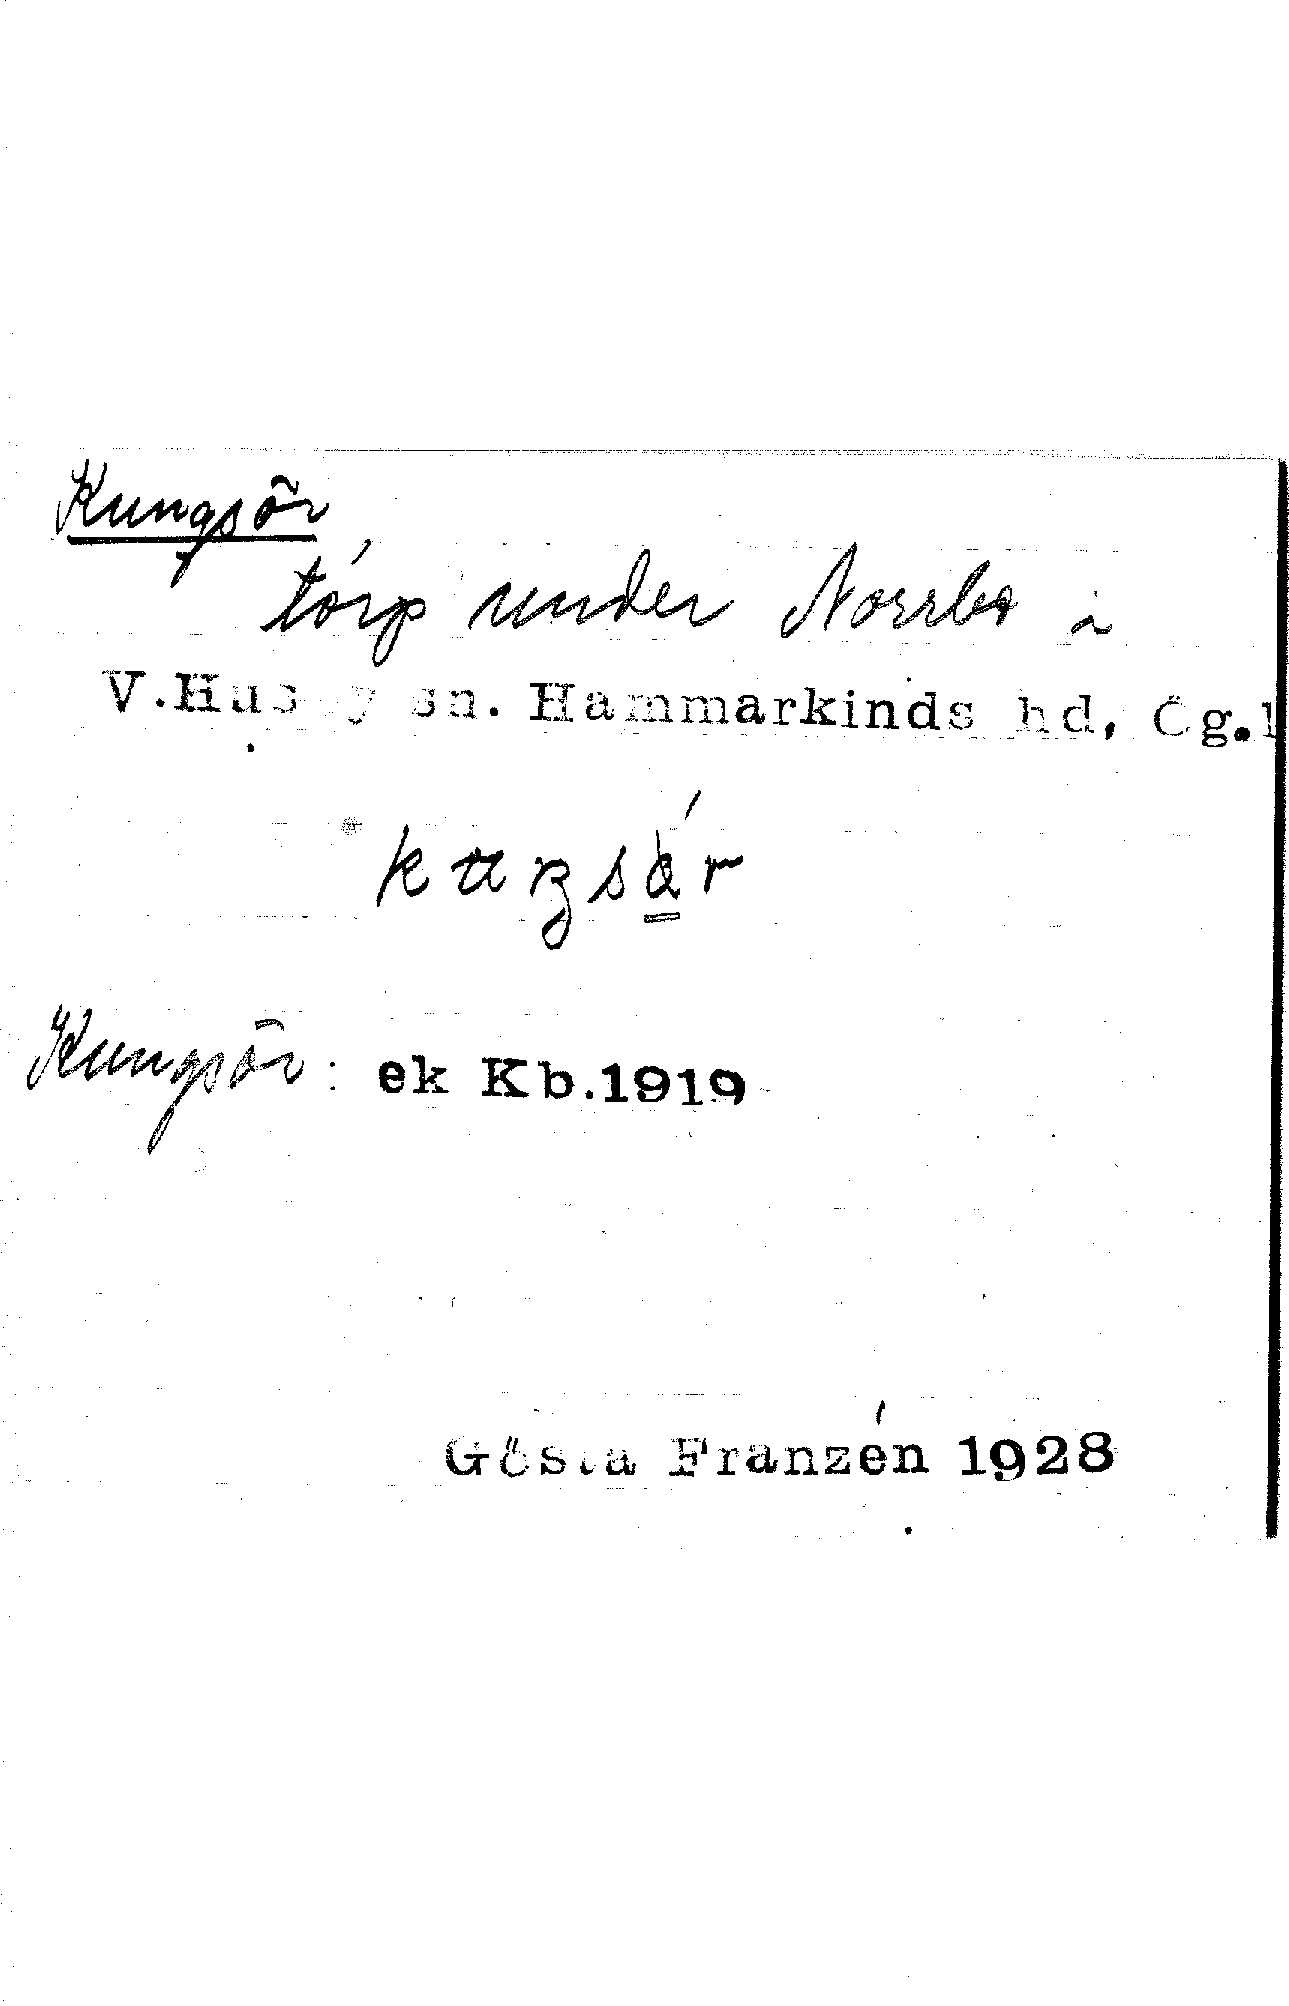 Kungsör
torp under Norrbo i
V.Husby sn. Hammarkinds hd, Ög.l
Kungsör: ek Kb.1919
Gösta Franzén 1928